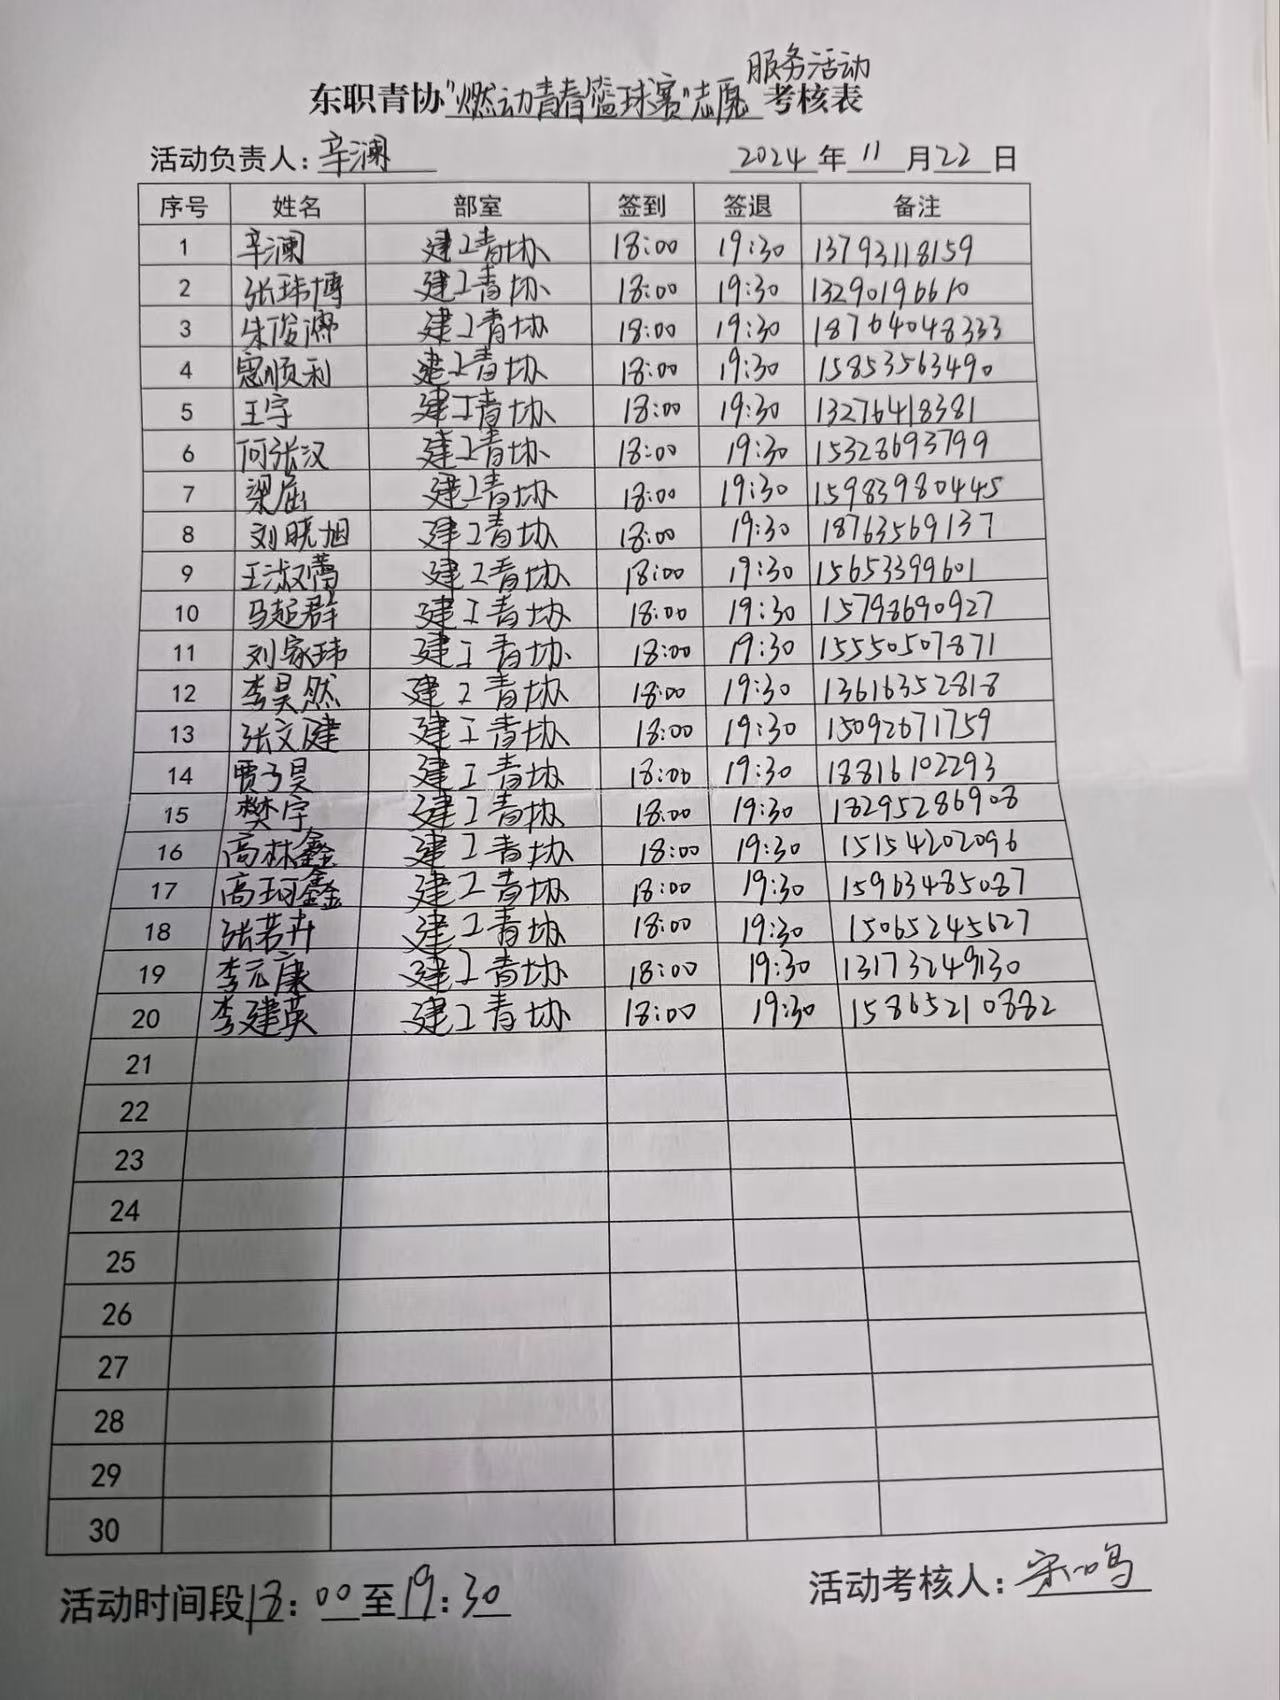 服务活动
东职青协"燃动青春篮球赛"志愿考核表
活动负责人:辛澜 2024 年 11 月 22 日
序号 姓名 部室 签到 签退 备注
1 辛澜 建工青协 18:00 19:30 13793118159
2 张玮博 建工青协 18:00 19:30 13290196610
3 朱俊 建工青协 18:00 19:30 18764048333
4 顺利 建工青协 18:00 19:30 15853563490
5 王宇 建工青协 18:00 19:30 13276418381
6 何张汉 建工青协 18:00 19:30 15328693799
7 梁 建工青协 18:00 19:30 15983980445
8 刘晓旭 建工青协 18:00 19:30 18763569137
9 王淑 建工青协 18:00 19:30 15653399601
10 马起群 建工青协 18:00 19:30 15798690927
11 刘家玮 建工青协 18:00 19:30 15550507871
12 李昊然 建工青协 18:00 19:30 13616352818
13 张文健 建工青协 18:00 19:30 15092671759
14 贾子昊 建工青协 18:00 19:30 18816102293
15 樊宇 建工青协 18:00 19:30 18295286908
16 高林鑫 建工青协 18:00 19:30 15154202096
17 高珂鑫 建工青协 18:00 19:30 15963485087
18 张若卉 建工青协 18:00 19:30 15065245627
19 李元康 建工青协 18:00 19:30 13173249130
20 李建英 建工青协 18:00 19:30 15865210882
21
22
23
24
25
26
27
28
29
30
活动时间段18:00至19:30 活动考核人:宋一鸣